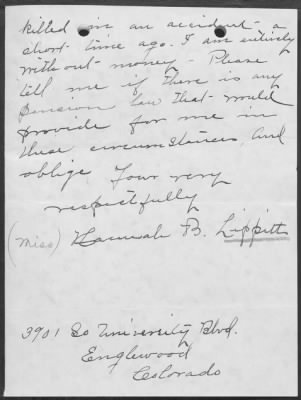 killed in an accident - a
short time ago. I am entirely
without money - Please
tell me if there is any
pension law that would
provide for me in
these circumstances, and
oblige Your very
respectfully
(Miss) Hannah B. Lippitt
3901 So University Blvd.
Englewood
Colorado